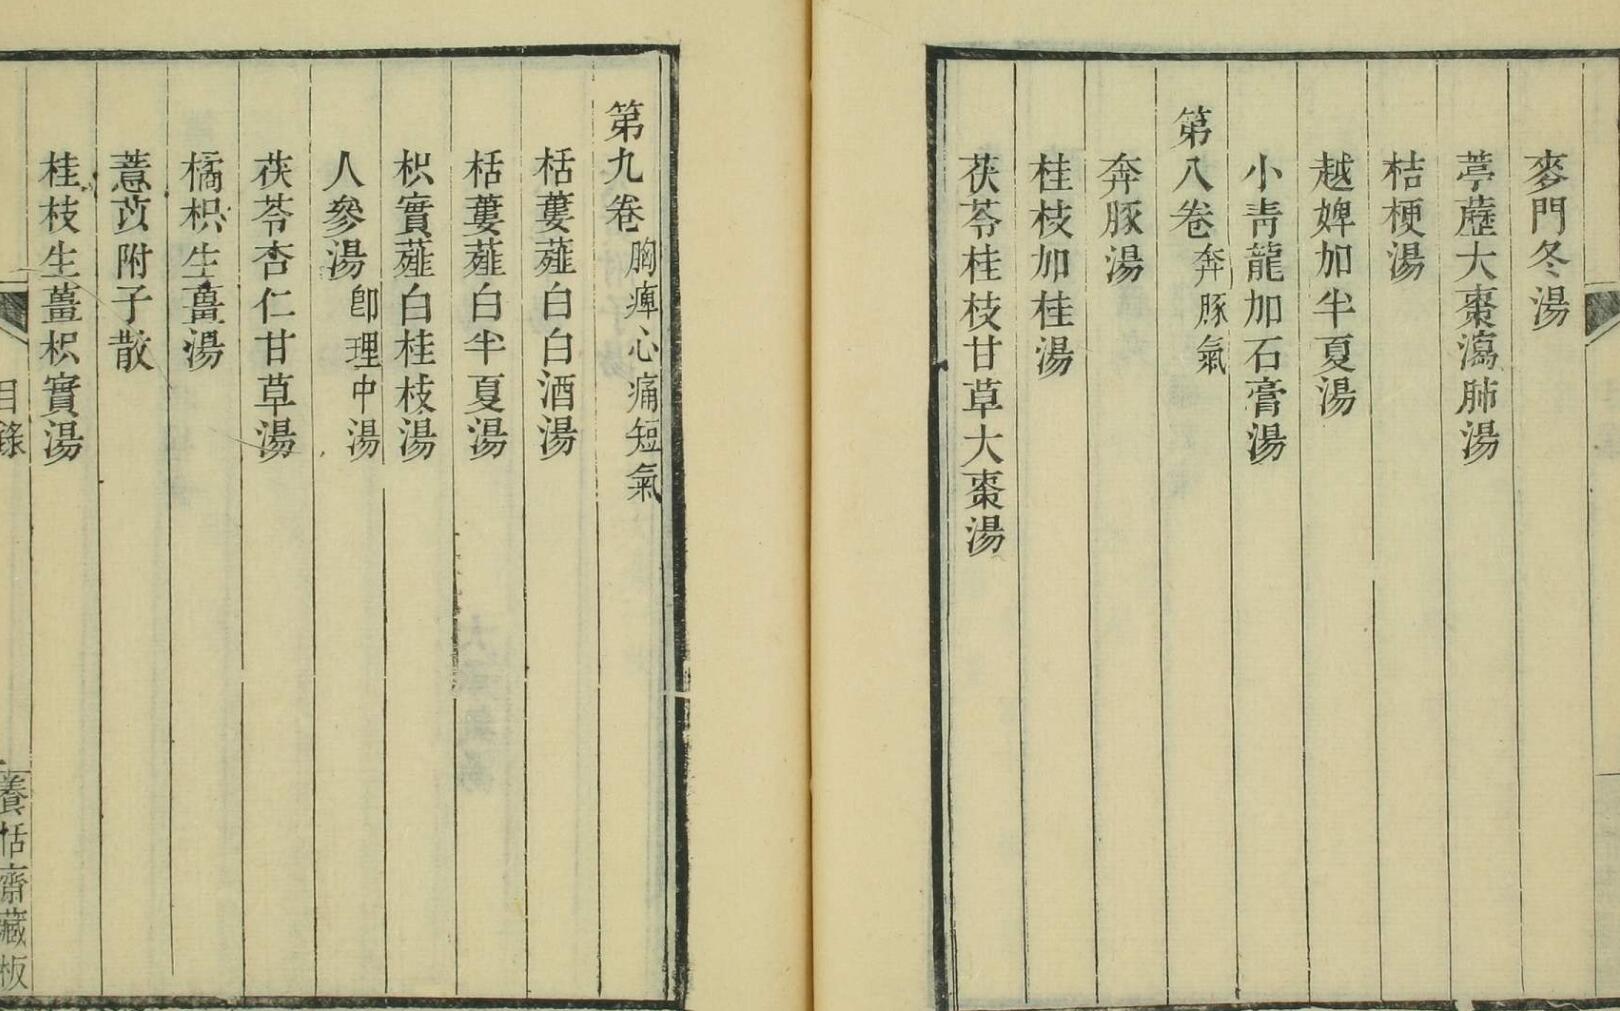 麥門冬湯
葶藶大棗瀉肺湯
桔梗湯
越婢加半夏湯
小青龍加石膏湯
第八卷 奔豚氣
奔豚湯
桂枝加桂湯
茯苓桂枝甘草大棗湯
第九卷 胸痺心痛短氣
栝蔞薤白白酒湯
栝蔞薤白半夏湯
枳實薤白桂枝湯
人參湯 卽理中湯
茯苓杏仁甘草湯
橘枳生薑湯
薏苡附子散
桂枝生薑枳實湯
目錄
養恬齋藏板